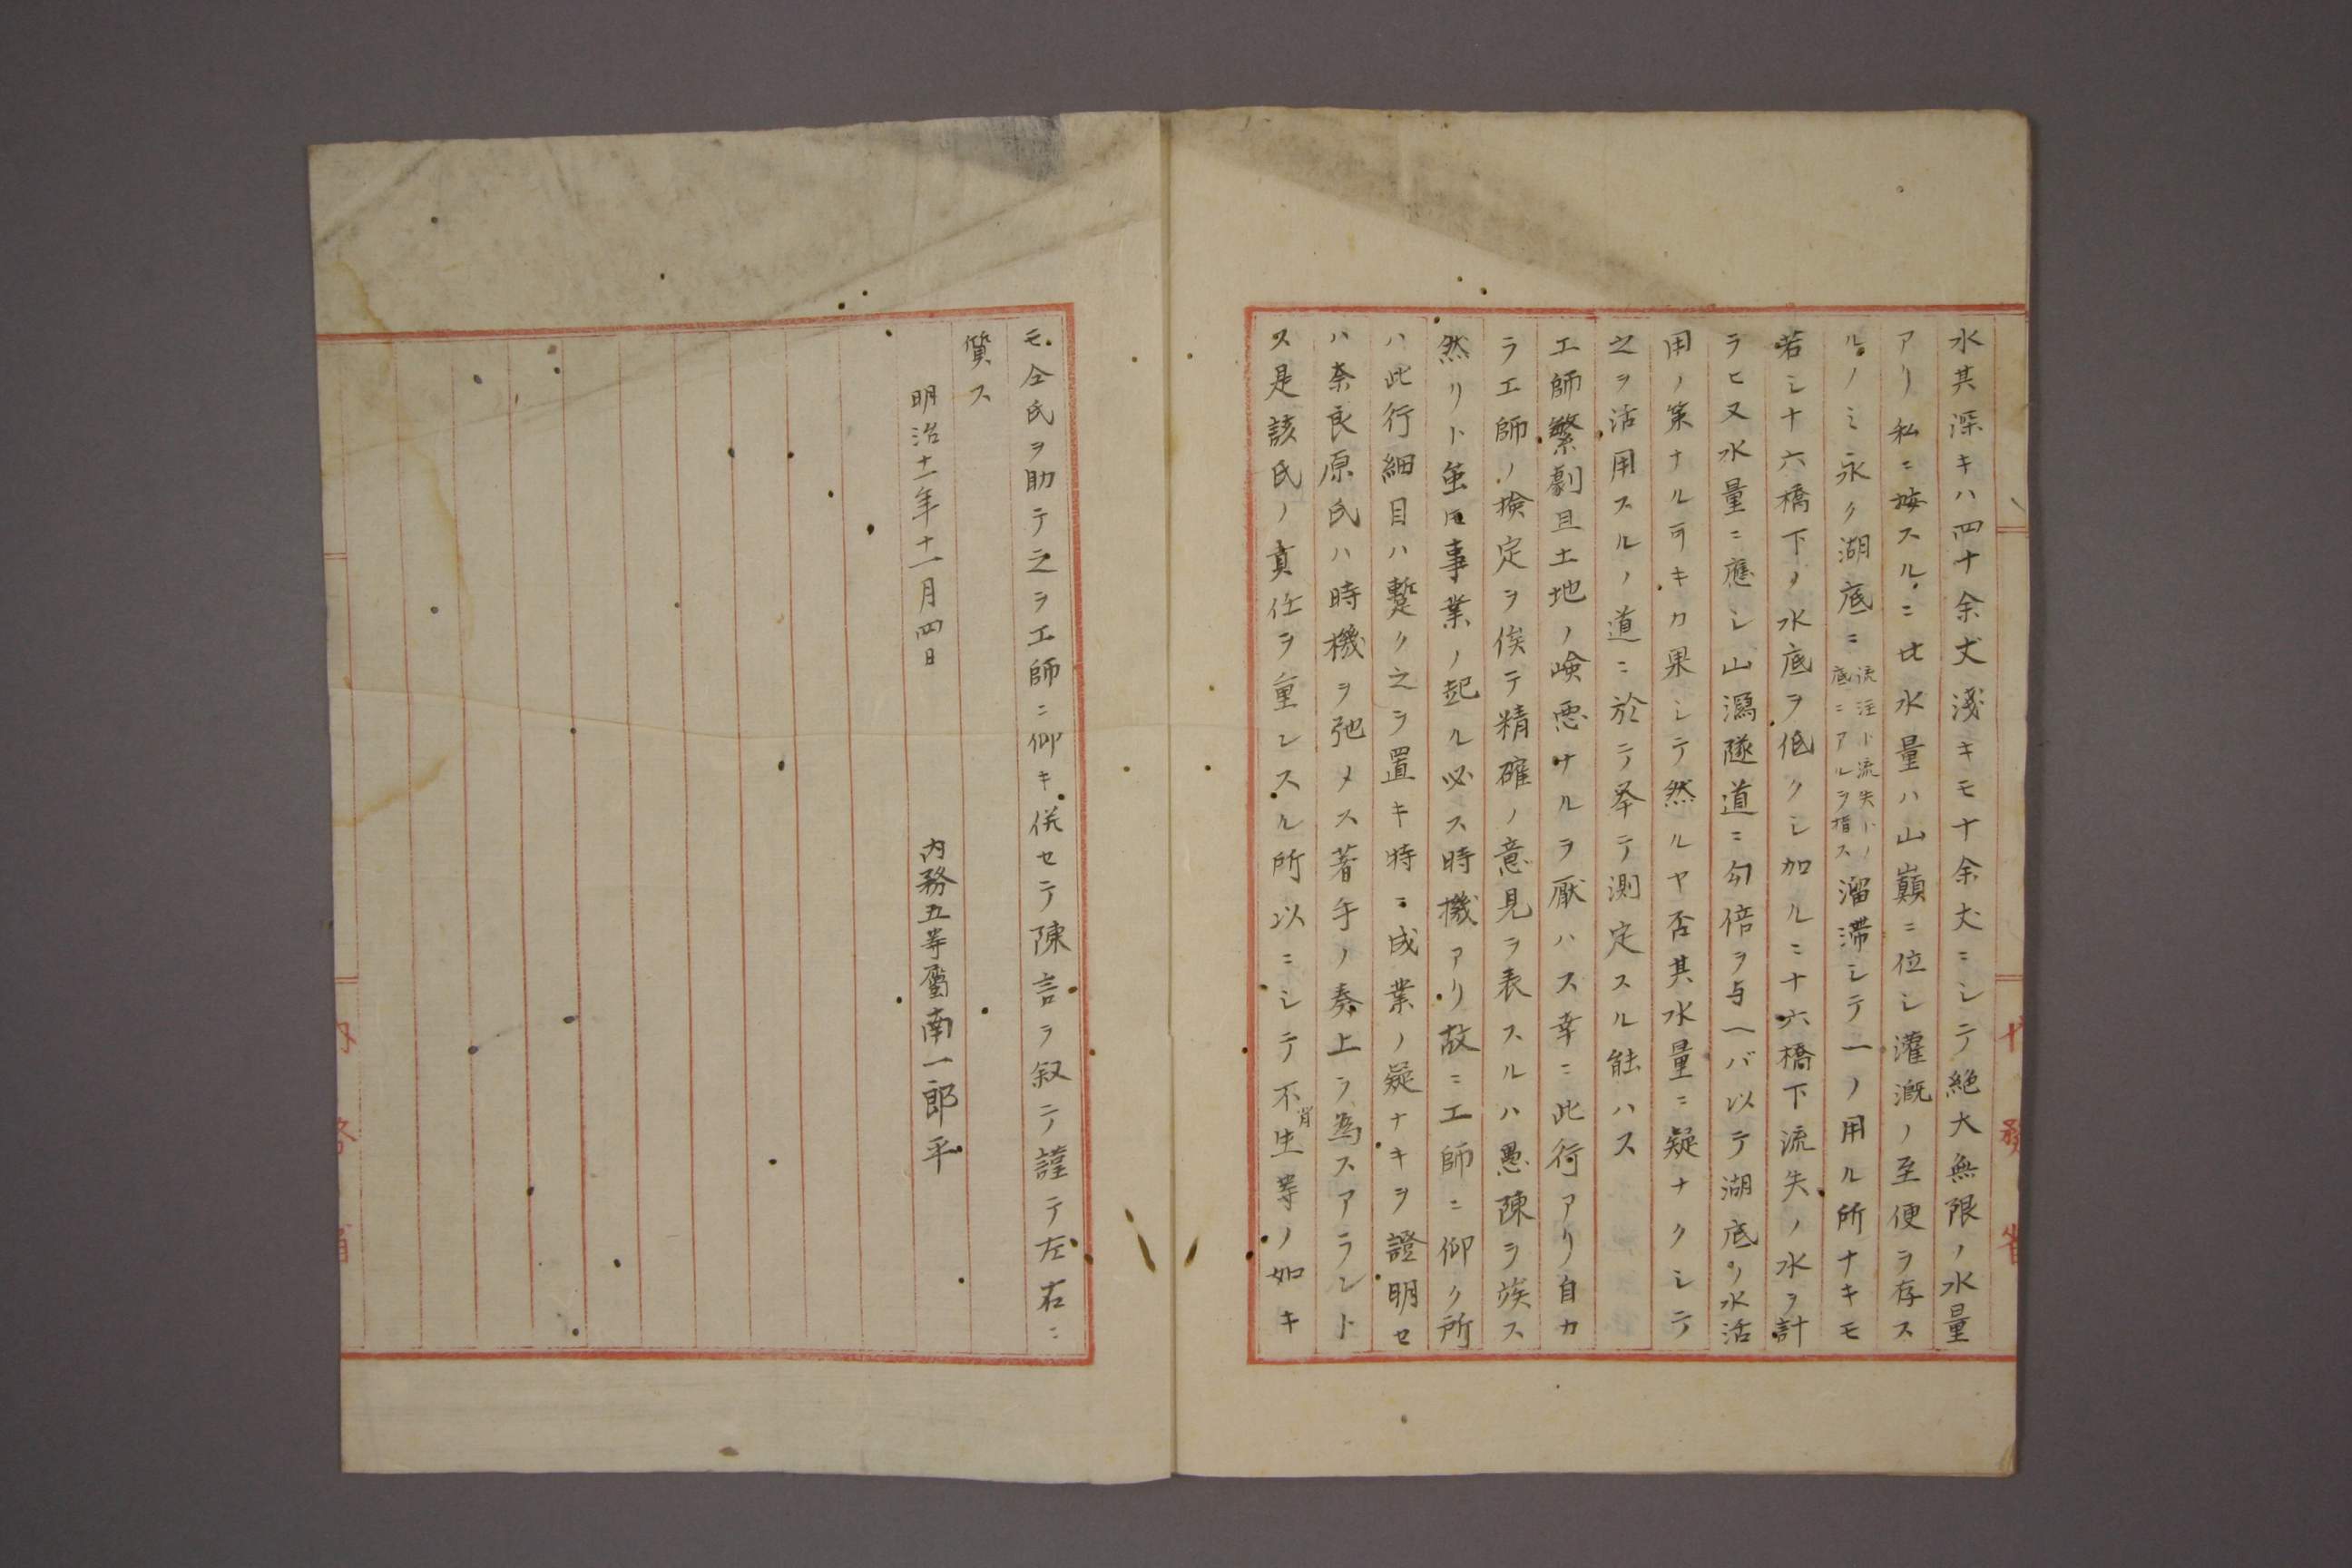 水其深キハ四十余丈淺キモ十余丈ニシテ絶大無限ノ水量
アリ私ニ按スルニ此水量ハ山巓ニ位シ灌漑ノ至便ヲ存ス
ルノミ永ク湖底ニ
流注ト流失トノ
底ニアルヲ指ス
溜滞シテ一ノ用ル所ナキモ
若シ十六橋下ノ水底ヲ低クシ加ルニ十六橋下流失ノ水ヲ計
ラヒ又水量ニ應シ山潟隧道ニ勾倍ヲ与ヘバ以テ湖底ノ水活
用ノ策ナル可キカ果シテ然ルヤ否其水量ニ疑ナクシテ
之ヲ活用スルノ道ニ於テ卒テ測定スル能ハス
工師繁劇且土地ノ嶮悪ナルヲ厭ハス幸ニ此行アリ自カ
ラ工師ノ撿定ヲ俟テ精確ノ意見ヲ表スルハ愚陳ヲ俟ス
然リト虽𪜈事業ノ起ル必ス時機アリ故ニ工師ニ仰ク所
ハ此行細目ハ暫ク之ヲ置キ特ニ成業ノ疑ナキヲ證明セ
ハ奈良原氏ハ時機ヲ弛メス着手ノ奏上ヲ為スアラント
ス是該氏ノ責任ヲ重ンスル所以ニシテ不肖生等ノ如キ
モ仝氏ヲ助テ之ヲ工師ニ仰キ併セテ陳言ヲ叙テ謹テ左右ニ
質ス
明治十一年十一月四日
内務五等属南一郎平
内務省
内務省